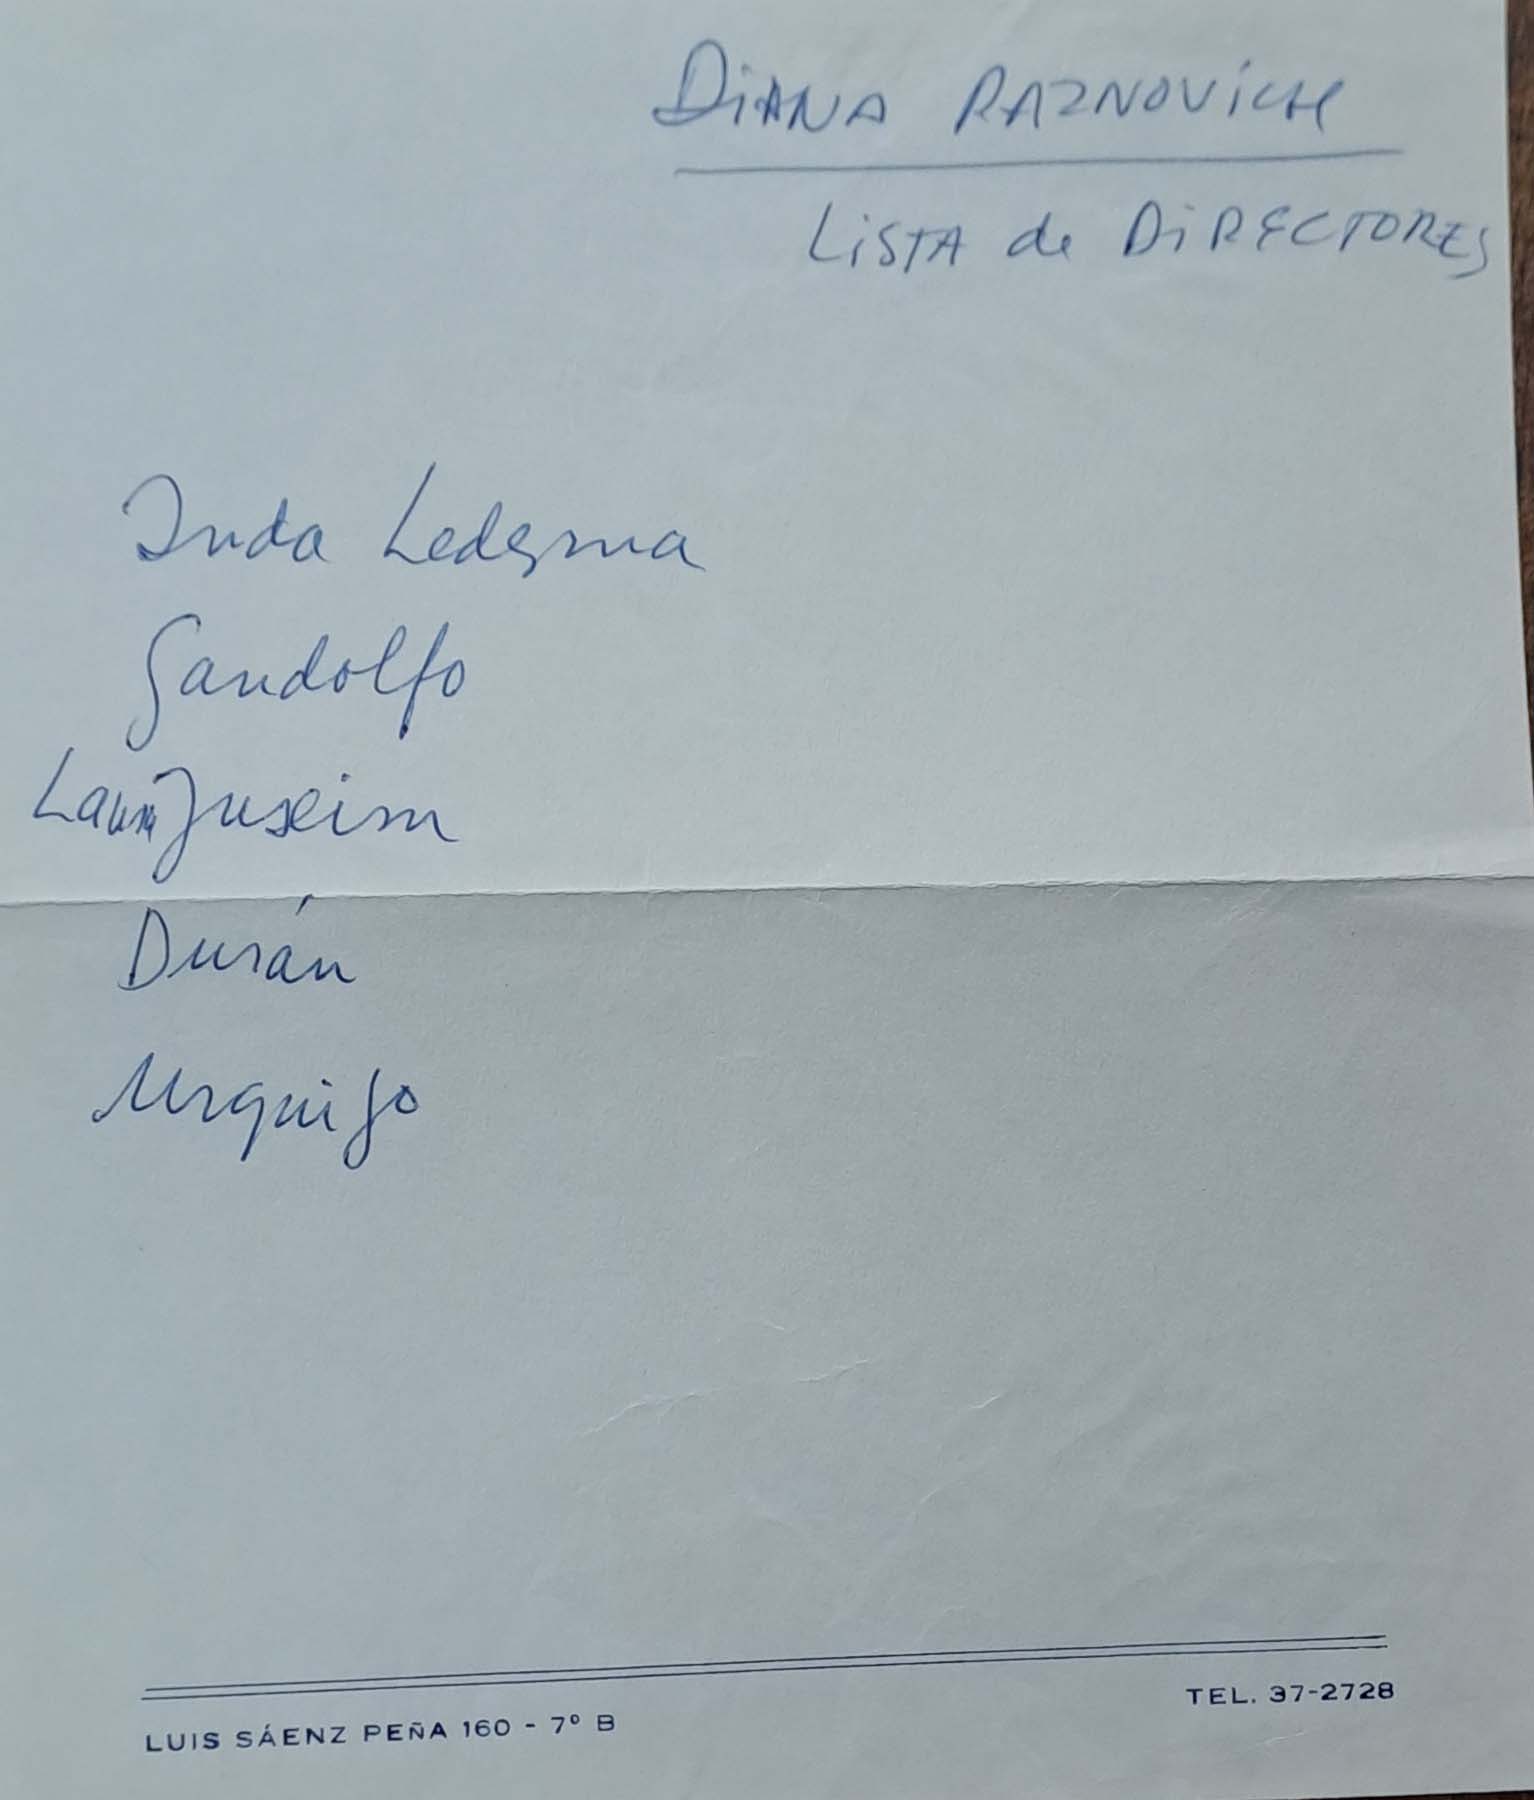 DIANA RAZNOVICH
LISTA de DIRECTORES
Inda Ledesma
Gandolfo
Laura Yusem
Durán
Urquijo
LUIS SÁENZ PEÑA 160 - 7º B
TEL. 37-2728